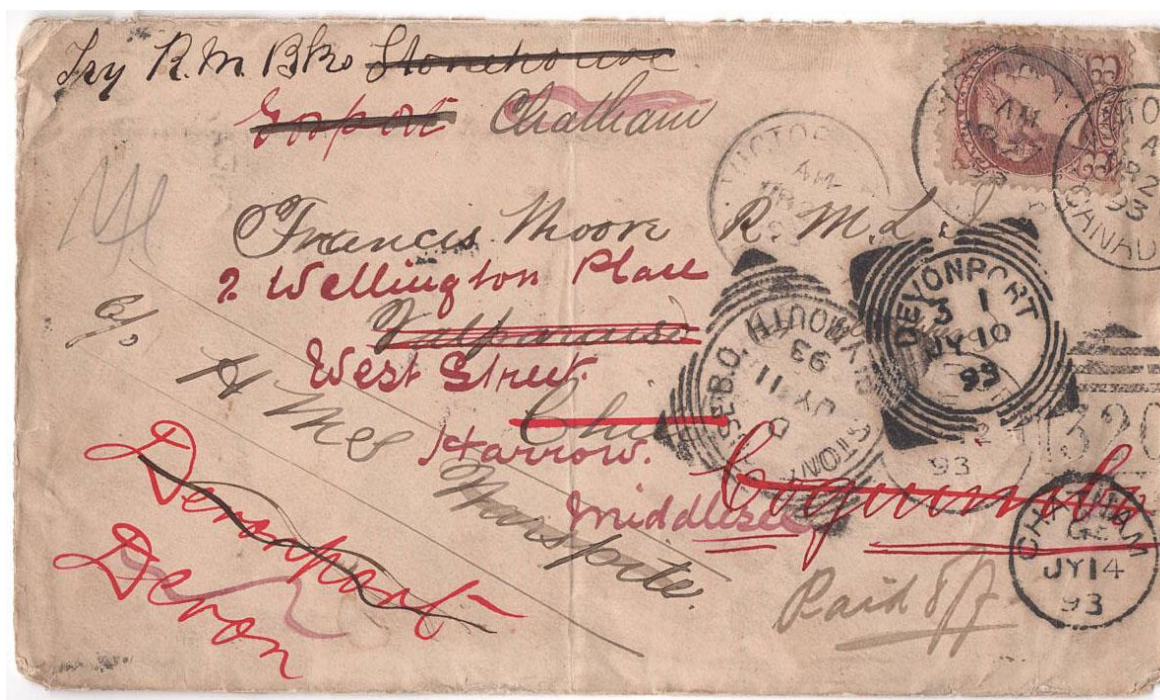 Try R. M. Bks Stonehouse
Gosport Chatham
Francis Moore R. M. L. I
2 Wellington Place
Valparaiso
West Street.
Chi
Harrow.
Middlesex
Coquimbo
c/o
H M S
Warspite.
Devonport
Devon
Paid off
VICTOR
AM
93
VICTO
CANADA
DEVONPORT
3 1
JY 10
93
PLYMOUTH
JY 11
93
93
320
CHATHAM
JY 14
93